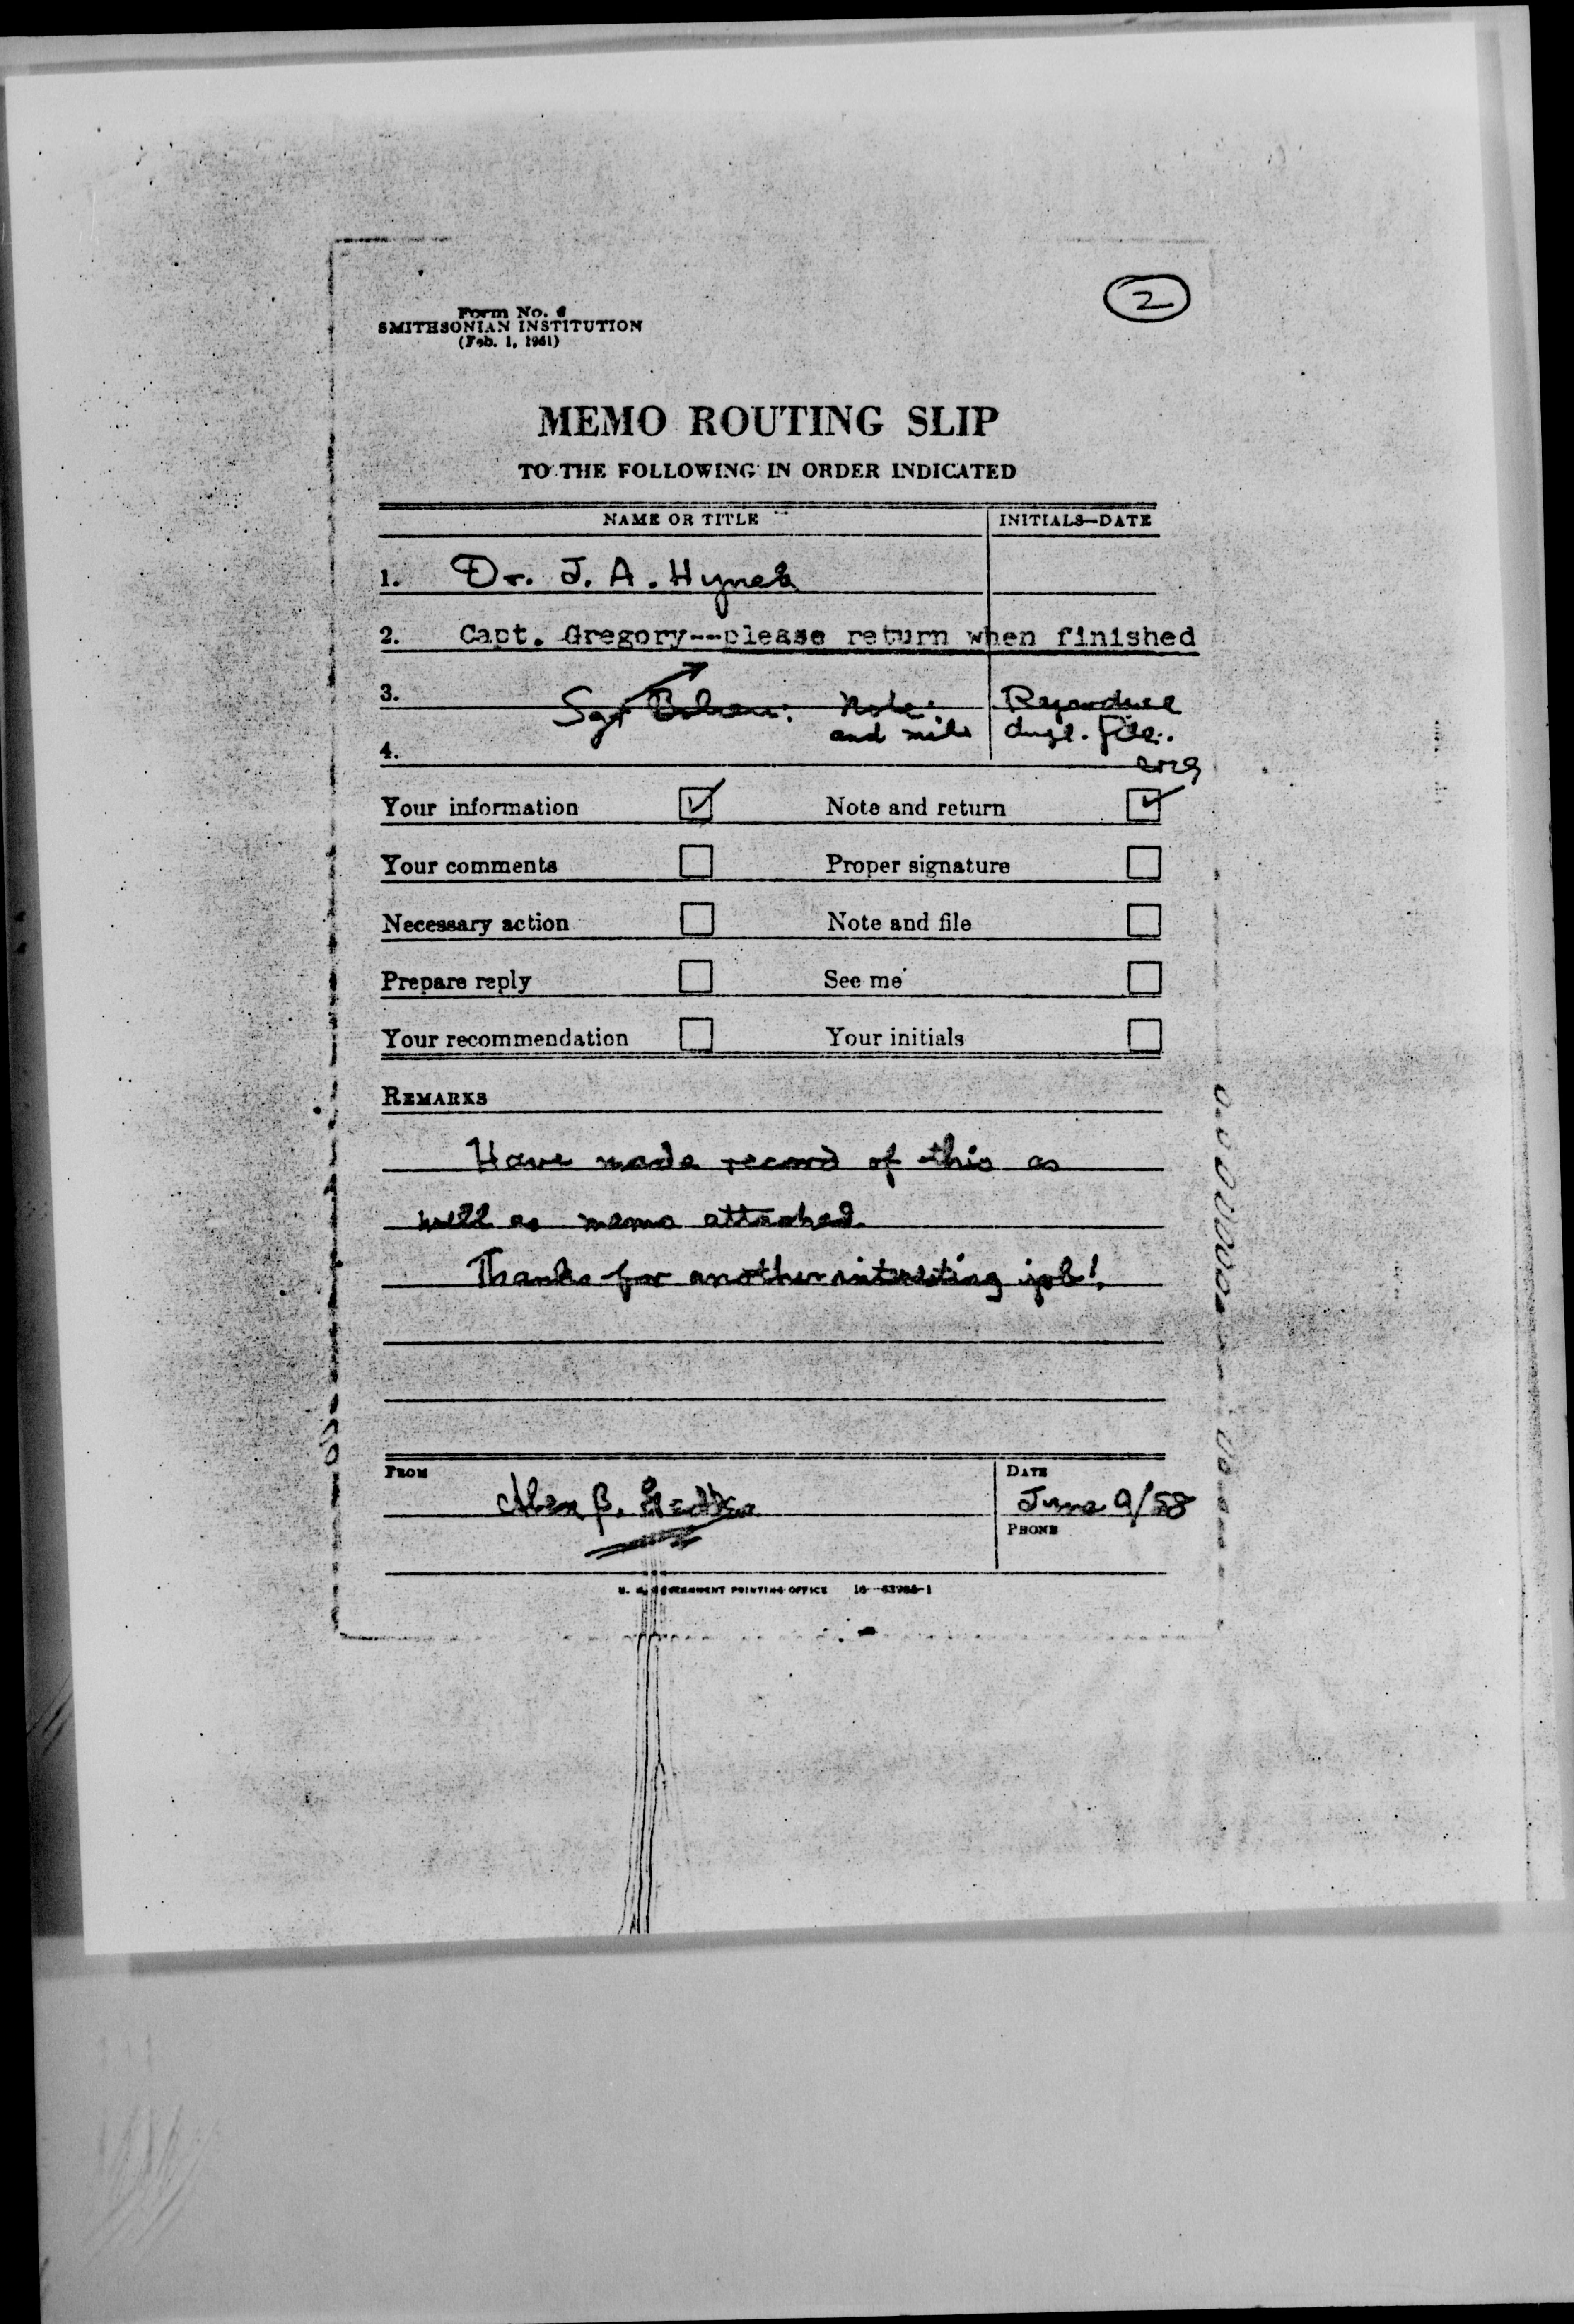 2
Form No. 6
SMITHSONIAN INSTITUTION
(Feb. 1, 1941)
MEMO ROUTING SLIP
TO THE FOLLOWING IN ORDER INDICATED
NAME OR TITLE INITIALS—DATE
1. Dr. J. A. Hynek
2. Capt. Gregory--please return when finished
3. Sgt Note: Reproduce
and dupl. file.
4.
Your information Note and return
Your comments Proper signature
Necessary action Note and file
Prepare reply See me
Your recommendation Your initials
REMARKS
Have made record of this as
well as memo attached.
Thanks for another interesting job!
FROM DATE
B. June 9/58
PHONE
U. S. GOVERNMENT PRINTING OFFICE